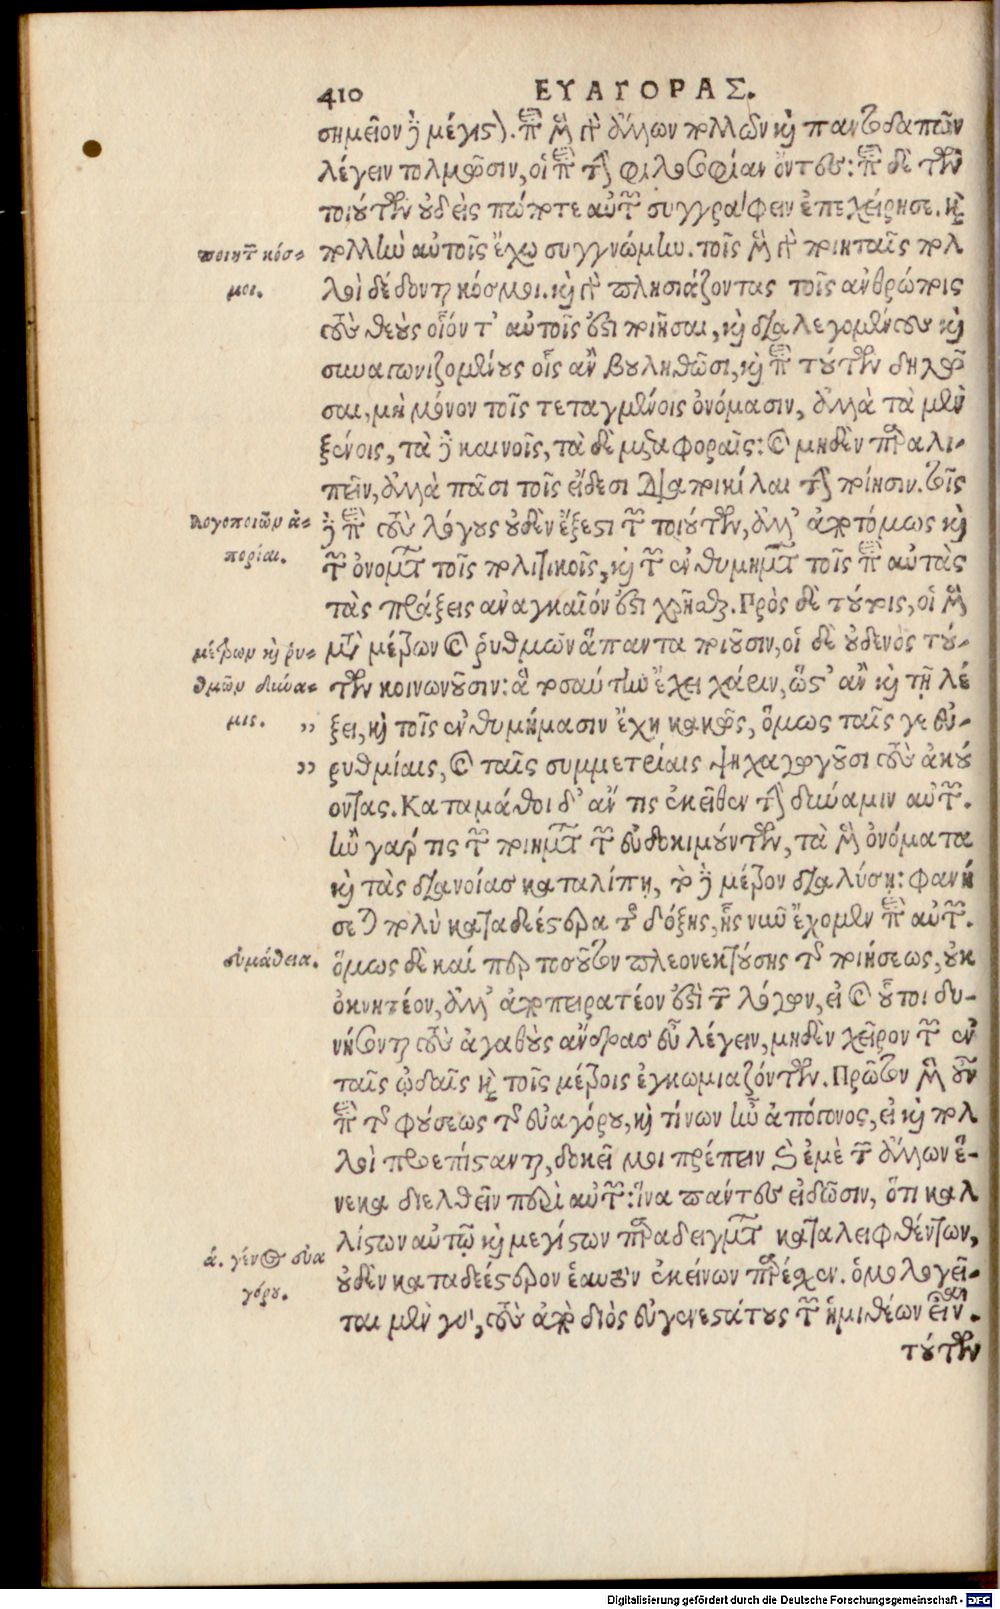 410 ΕΥΑΓΟΡΑΣ.
σημεῖον δὲ μέγιστον. περὶ μὲν γὰρ ἄλλων πολλῶν καὶ παντοδαπῶν
λέγειν τολμῶσιν, οἱ περὶ τὴν φιλοσοφίαν ὄντες: περὶ δὲ τῶν
τοιούτων οὐδεὶς πώποτε αὐτῶν συγγράφειν ἐπεχείρησε. καὶ
ποιητῶν κόσ-
μοι.
πολλὴν αὐτοῖς ἔχω συγγνώμην. τοῖς μὲν γὰρ ποιηταῖς πολ
λοὶ δέδονται κόσμοι. καὶ γὰρ πλησιάζοντας τοῖς ἀνθρώποις
τοὺς θεοὺς οἷόν τ' αὐτοῖς ἐστι ποιῆσαι, καὶ διαλεγομένους καὶ
συναγωνιζομένους οἷς ἂν βουληθῶσι, καὶ περὶ τούτων δηλῶ
σαι, μὴ μόνον τοῖς τεταγμένοις ὀνόμασιν, ἀλλὰ τὰ μὲν
ξένοις, τὰ δὲ καινοῖς, τὰ δὲ μεταφοραῖς: καὶ μηδὲν παραλι-
πεῖν, ἀλλὰ πᾶσι τοῖς εἴδεσι διαποικίλαι τὴν ποίησιν. τοῖς
λογοποιῶν ἀ-
πορίαι.
δὲ περὶ τοὺς λόγους οὐδὲν ἔξεστι τῶν τοιούτων, ἀλλ' ἀποτόμως καὶ
τῶν ὀνομάτων τοῖς πολιτικοῖς, καὶ τῶν ἐνθυμημάτων τοῖς περὶ αὐτὰς
τὰς πράξεις ἀναγκαῖόν ἐστι χρῆσθαι. Πρὸς δὲ τούτοις, οἱ μὲν
μέτρων καὶ ῥυ-
θμῶν δύνα-
μις.
μετὰ μέτρων καὶ ῥυθμῶν ἅπαντα ποιοῦσιν, οἱ δὲ οὐδενὸς τού-
των κοινωνοῦσιν: ἃ τοσαύτην ἔχει χάριν, ὥστ' ἂν καὶ τῇ λέ
„ ξει, καὶ τοῖς ἐνθυμήμασιν ἔχῃ κακῶς, ὅμως ταῖς γε εὐ-
„ ρυθμίαις, καὶ ταῖς συμμετρίαις ψυχαγωγοῦσι τοὺς ἀκού
οντας. Καταμάθοι δ' ἄν τις ἐκεῖθεν τὴν δύναμιν αὐτῶν.
ἢν γάρ τις τῶν ποιημάτων τῶν εὐδοκιμούντων, τὰ μὲν ὀνόματα
καὶ τὰς διανοίας καταλίπῃ, τὸ δὲ μέτρον διαλύσῃ: φανή
σεται πολὺ καταδεέστερα τῆς δόξης, ἧς νῦν ἔχομεν περὶ αὐτῶν.
εὐμάθεια.
ὅμως δὲ καί περ τοσοῦτον πλεονεκτούσης τῆς ποιήσεως, οὐκ
ὀκνητέον, ἀλλ' ἀποπειρατέον ἐστὶ τῶν λόγων, εἰ καὶ οὗτοι δυ-
νήσονται τοὺς ἀγαθοὺς ἄνδρας εὖ λέγειν, μηδὲν χεῖρον τῶν ἐν
ταῖς ᾠδαῖς καὶ τοῖς μέτροις ἐγκωμιαζόντων. Πρῶτον μὲν οὖν
περὶ τῆς φύσεως τῆς εὐαγόρου, καὶ τίνων ἦν ἀπόγονος, εἰ καὶ πολ
λοὶ προεπίστανται, δοκεῖ μοι πρέπειν καὶ ἐμὲ τῶν ἄλλων ἕ-
νεκα διελθεῖν περὶ αὐτῶν: ἵνα πάντες εἰδῶσιν, ὅτι καλ
ά. γένος εὐα
γόρου.
λίστων αὐτῷ καὶ μεγίστων παραδειγμάτων καταλειφθέντων,
οὐδὲν καταδεέστερον ἑαυτὸν ἐκείνων παρέσχεν. ὁμολογεῖ-
ται μὲν γὰρ, τοὺς ἀπὸ διὸς εὐγενεστάτους τῶν ἡμιθέων εἶναι.
τούτων
Digitalisierung gefördert durch die Deutsche Forschungsgemeinschaft - DFG